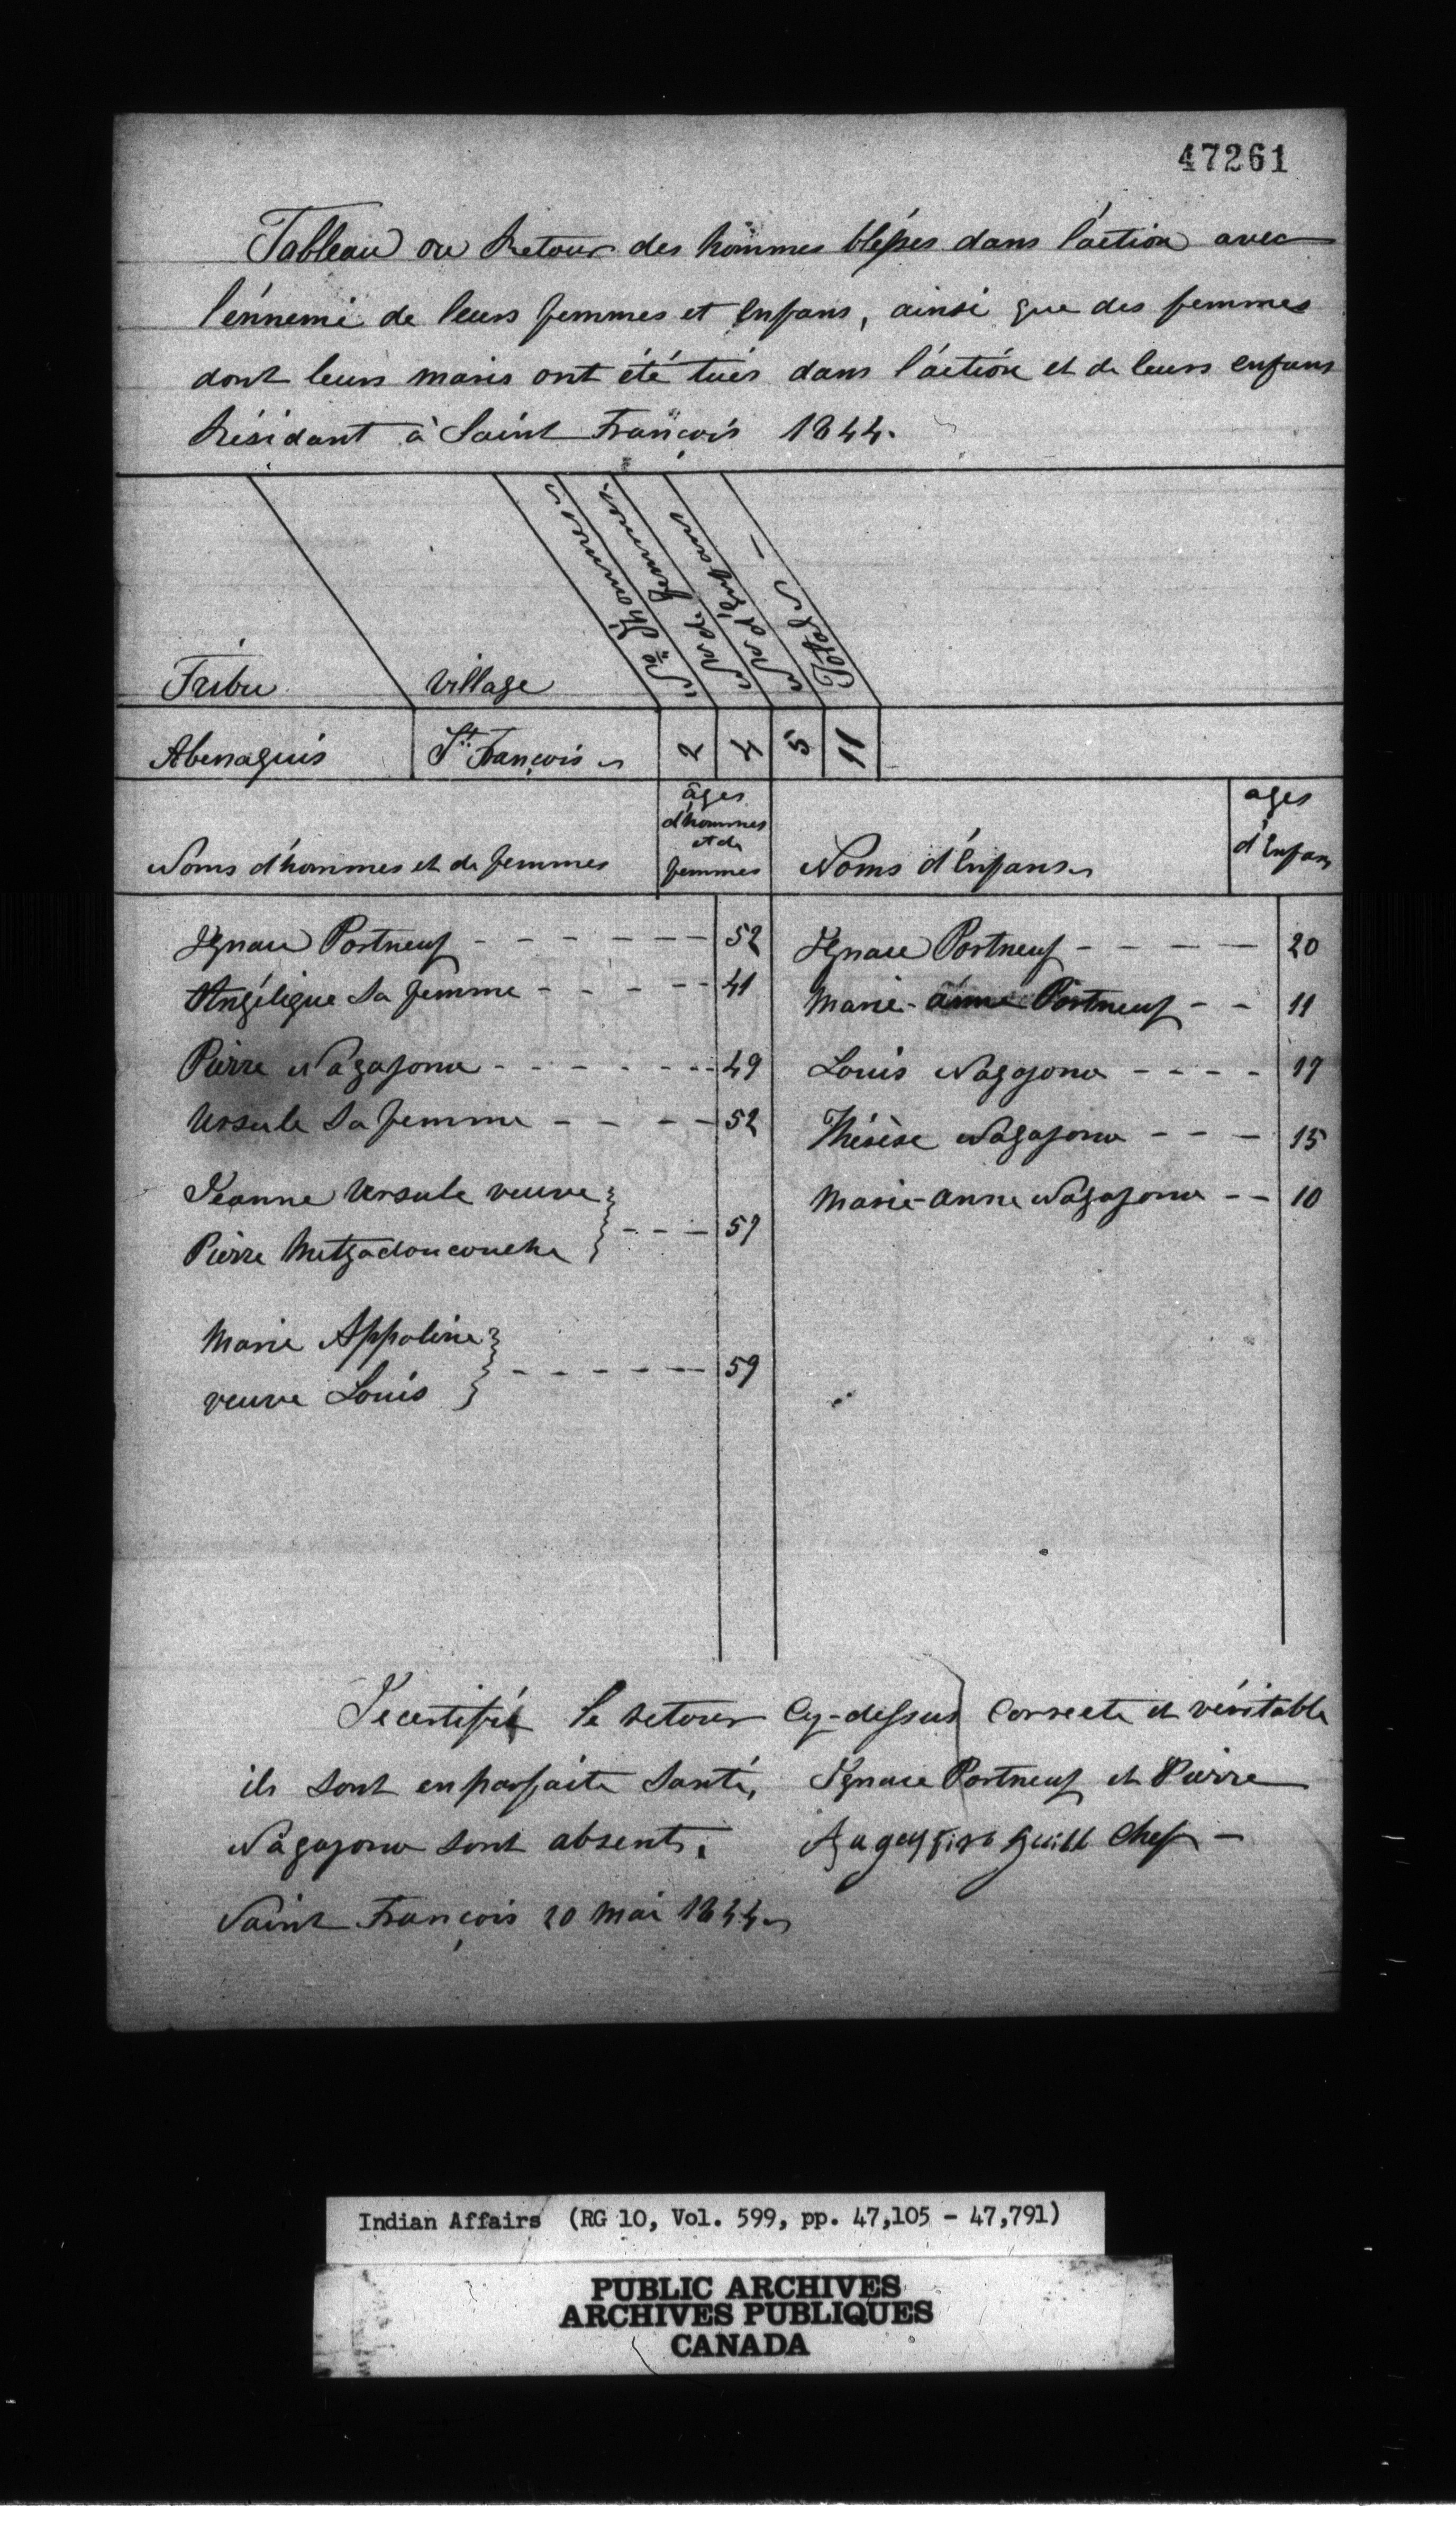 47261
Tableau ou Retour des hommes blessés dans l'action avec
l'énnemi de leurs femmes et Enfans, ainsi que des femmes
dont leurs maris ont été tués dans l'action et de leurs enfans
Résidant à Saint François 1844.
Tribu Village No. d'hommes Nr de femmes. Nr d'Enfans Totals
Abenaquis St. François 2 4 5 11
Noms d'hommes et de femmes âges d'hommes et de femmes Noms d'Enfans ages d'Enfans
Ignace Portneuf - - - - - - 52 Ignace Portneuf - - - - 20
Angélique Sa femme - - - - - 41 Marie-anne Portneuf - - 11
Pierre Nagajoua - - - - - - 49 Louis Nagajoua - - - - 17
Ursule Sa femme - - - - 52 Thérèse Nagajoua - - - 15
Jeanne Ursule veuve Marie-anne Nagajoua - - 10
Pierre Metzadoucouche } - - - 57
Marie Appoline
veuve Louis } - - - - - - 59
Je certifié le retour Cy-dessus Correcte et véritable
ils sont en parfaite Santé, Ignace Portneuf et Pierre
Nagajoua sont absents. Chef -
Saint François 20 Mai 1844
Indian Affairs (RG 10, Vol. 599, pp. 47,105 - 47,791)
PUBLIC ARCHIVES
ARCHIVES PUBLIQUES
CANADA